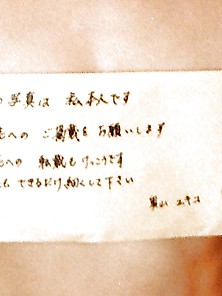 写真は 私本人です
への ご掲載を お願いします
への 転載もけっこうです
できるだけ 細くして下さい
ユキコ